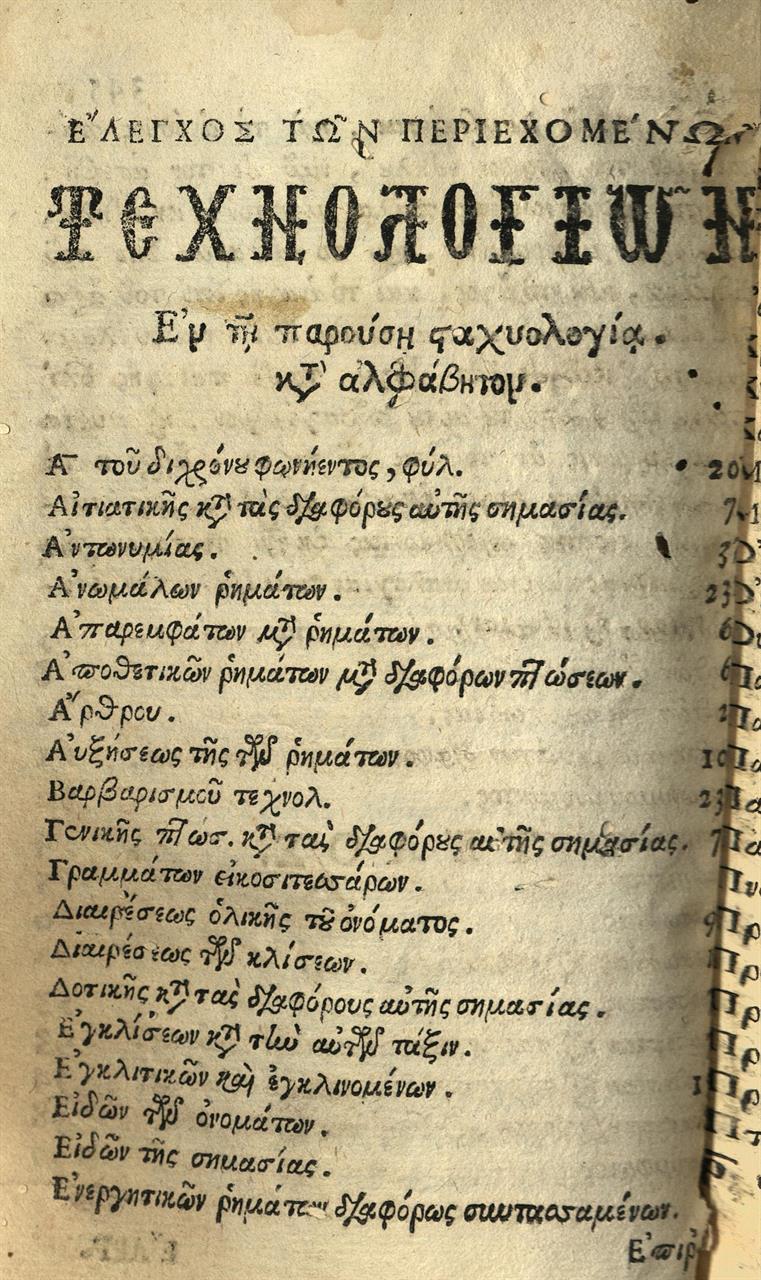 ΕʼΛΕΓΧΟΣ ΤΩ͂Ν ΠΕΡΙΕΧΟΜΕ΄ΝΩΝ
ΤΕΧΝΟΛΟΓΙΩ͂Ν
Εʼν τῇ παρούσῃ ϛαχυολογίᾳ.
κτ̀ ἀλφάβητον.
Α τοῦ διχρόνȣ φωνήεντος, φύλ. 20
Αἰτιατικῆς κτ̀ τὰς διαφόρȣς αὐτῆς σημασίας. 7
Αʼντωνυμίας. 3
Αʼνωμάλων ῥημάτων. 23
Αʼπαρεμφάτων μτ̀ ῥημάτων. 6
Αʼποθετικῶν ῥημάτων μτ̀ διαφόρων πτώσεων. 6
Αʼ́ρθρου. 2
Αʼυξήσεως τῆς τῶν ῥημάτων. 10
Βαρβαρισμοῦ τεχνολ. 23
Γενικῆς πτώσ. κτ̀ τὰς διαφόρȣς αὐτῆς σημασίας. 7
Γραμμάτων εἰκοσιτεσσάρων.
Διαιρέσεως ὁλικῆς τȣ͂ ὀνόματος. 9
Διαιρέσεως τῶν κλίσεων.
Δοτικῆς κτ̀ τὰς διαφόρους αὐτῆς σημασίας.
Εʼγκλίσεων κτ̀ τὴν αὐτῶν τάξιν.
Εʼγκλιτικῶν καὶ ἐγκλινομένων. 1
Εἰδῶν τῶν ὀνομάτων.
Εἰδῶν τῆς σημασίας.
Εʼνεργητικῶν ῥημάτων διαφόρως συντασσαμένων.
Εʼπιῤ